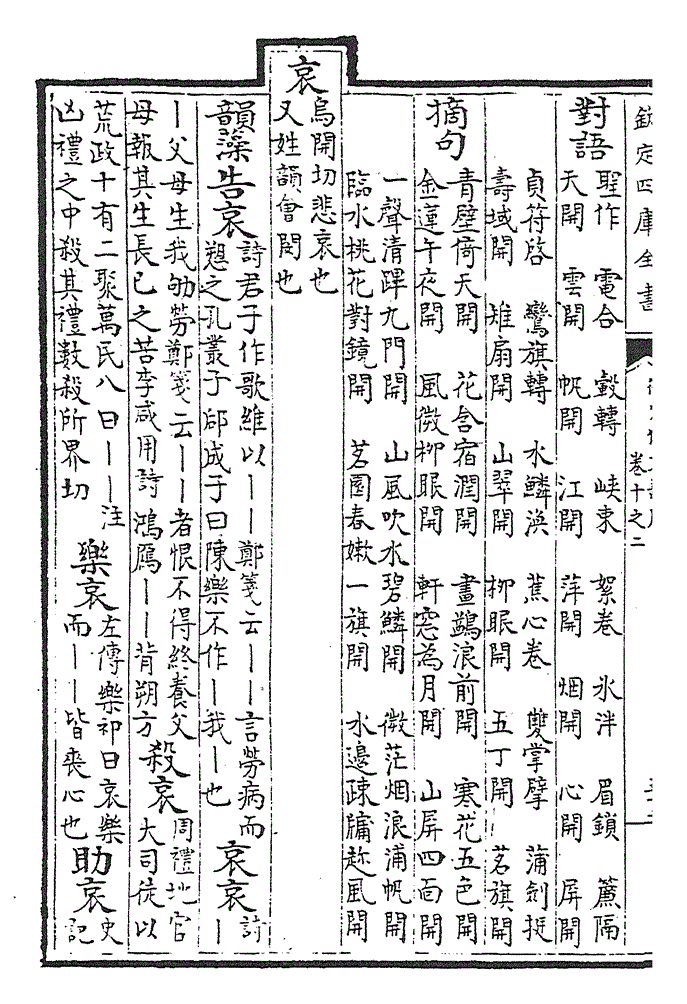 欽定四庫全書
卷十之二
對語
聖作 電合 轂轉 峽束 絮卷 氷泮 眉鎖 簾隔
天開 雲開 帆開 江開 萍開 烟開 心開 屏開
貞符啓 鸞旗轉 水鱗渙 蕉心卷 雙掌擘 蒲劍挺
壽域開 雉扇開 山翠開 柳眼開 五丁開 茗旗開
摘句
青壁倚天開 花含宿潤開 畫鷁浪前開 寒花五色開
金蓮午夜開 風微柳眼開 軒窓為月開 山屏四面開
一聲清蹕九門開 山風吹水碧鱗開 微茫烟浪浦帆開
臨水桃花對鏡開 茗園春嫩一旗開 水邊疎牗趂風開
哀
烏開切悲哀也
又姓韻會閔也
韻藻 告哀
詩君子作歌維以——鄭箋云——言勞病而
愬之孔叢子郈成子曰陳樂不作—我—也
哀哀
詩—
—父母生我劬勞鄭箋云——者恨不得終養父
母報其生長已之苦李咸用詩鴻鴈——背朔方
殺哀
周禮地官
大司徒以
荒政十有二聚萬民八曰——注
凶禮之中殺其禮數殺所界切
樂哀
左傳樂祁曰哀樂
而——皆喪心也
助哀
史
記